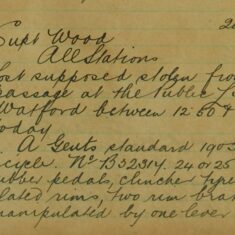 Supt Wood
All Stations
ost supposed stolen from
passage at the Public
Watford between 12.50 &
today
A Gents standard 1905
icycle. No B52314. 24 or 25
ubber pedals, clincher type
lated rims, two rim bra
manipulated by one lever